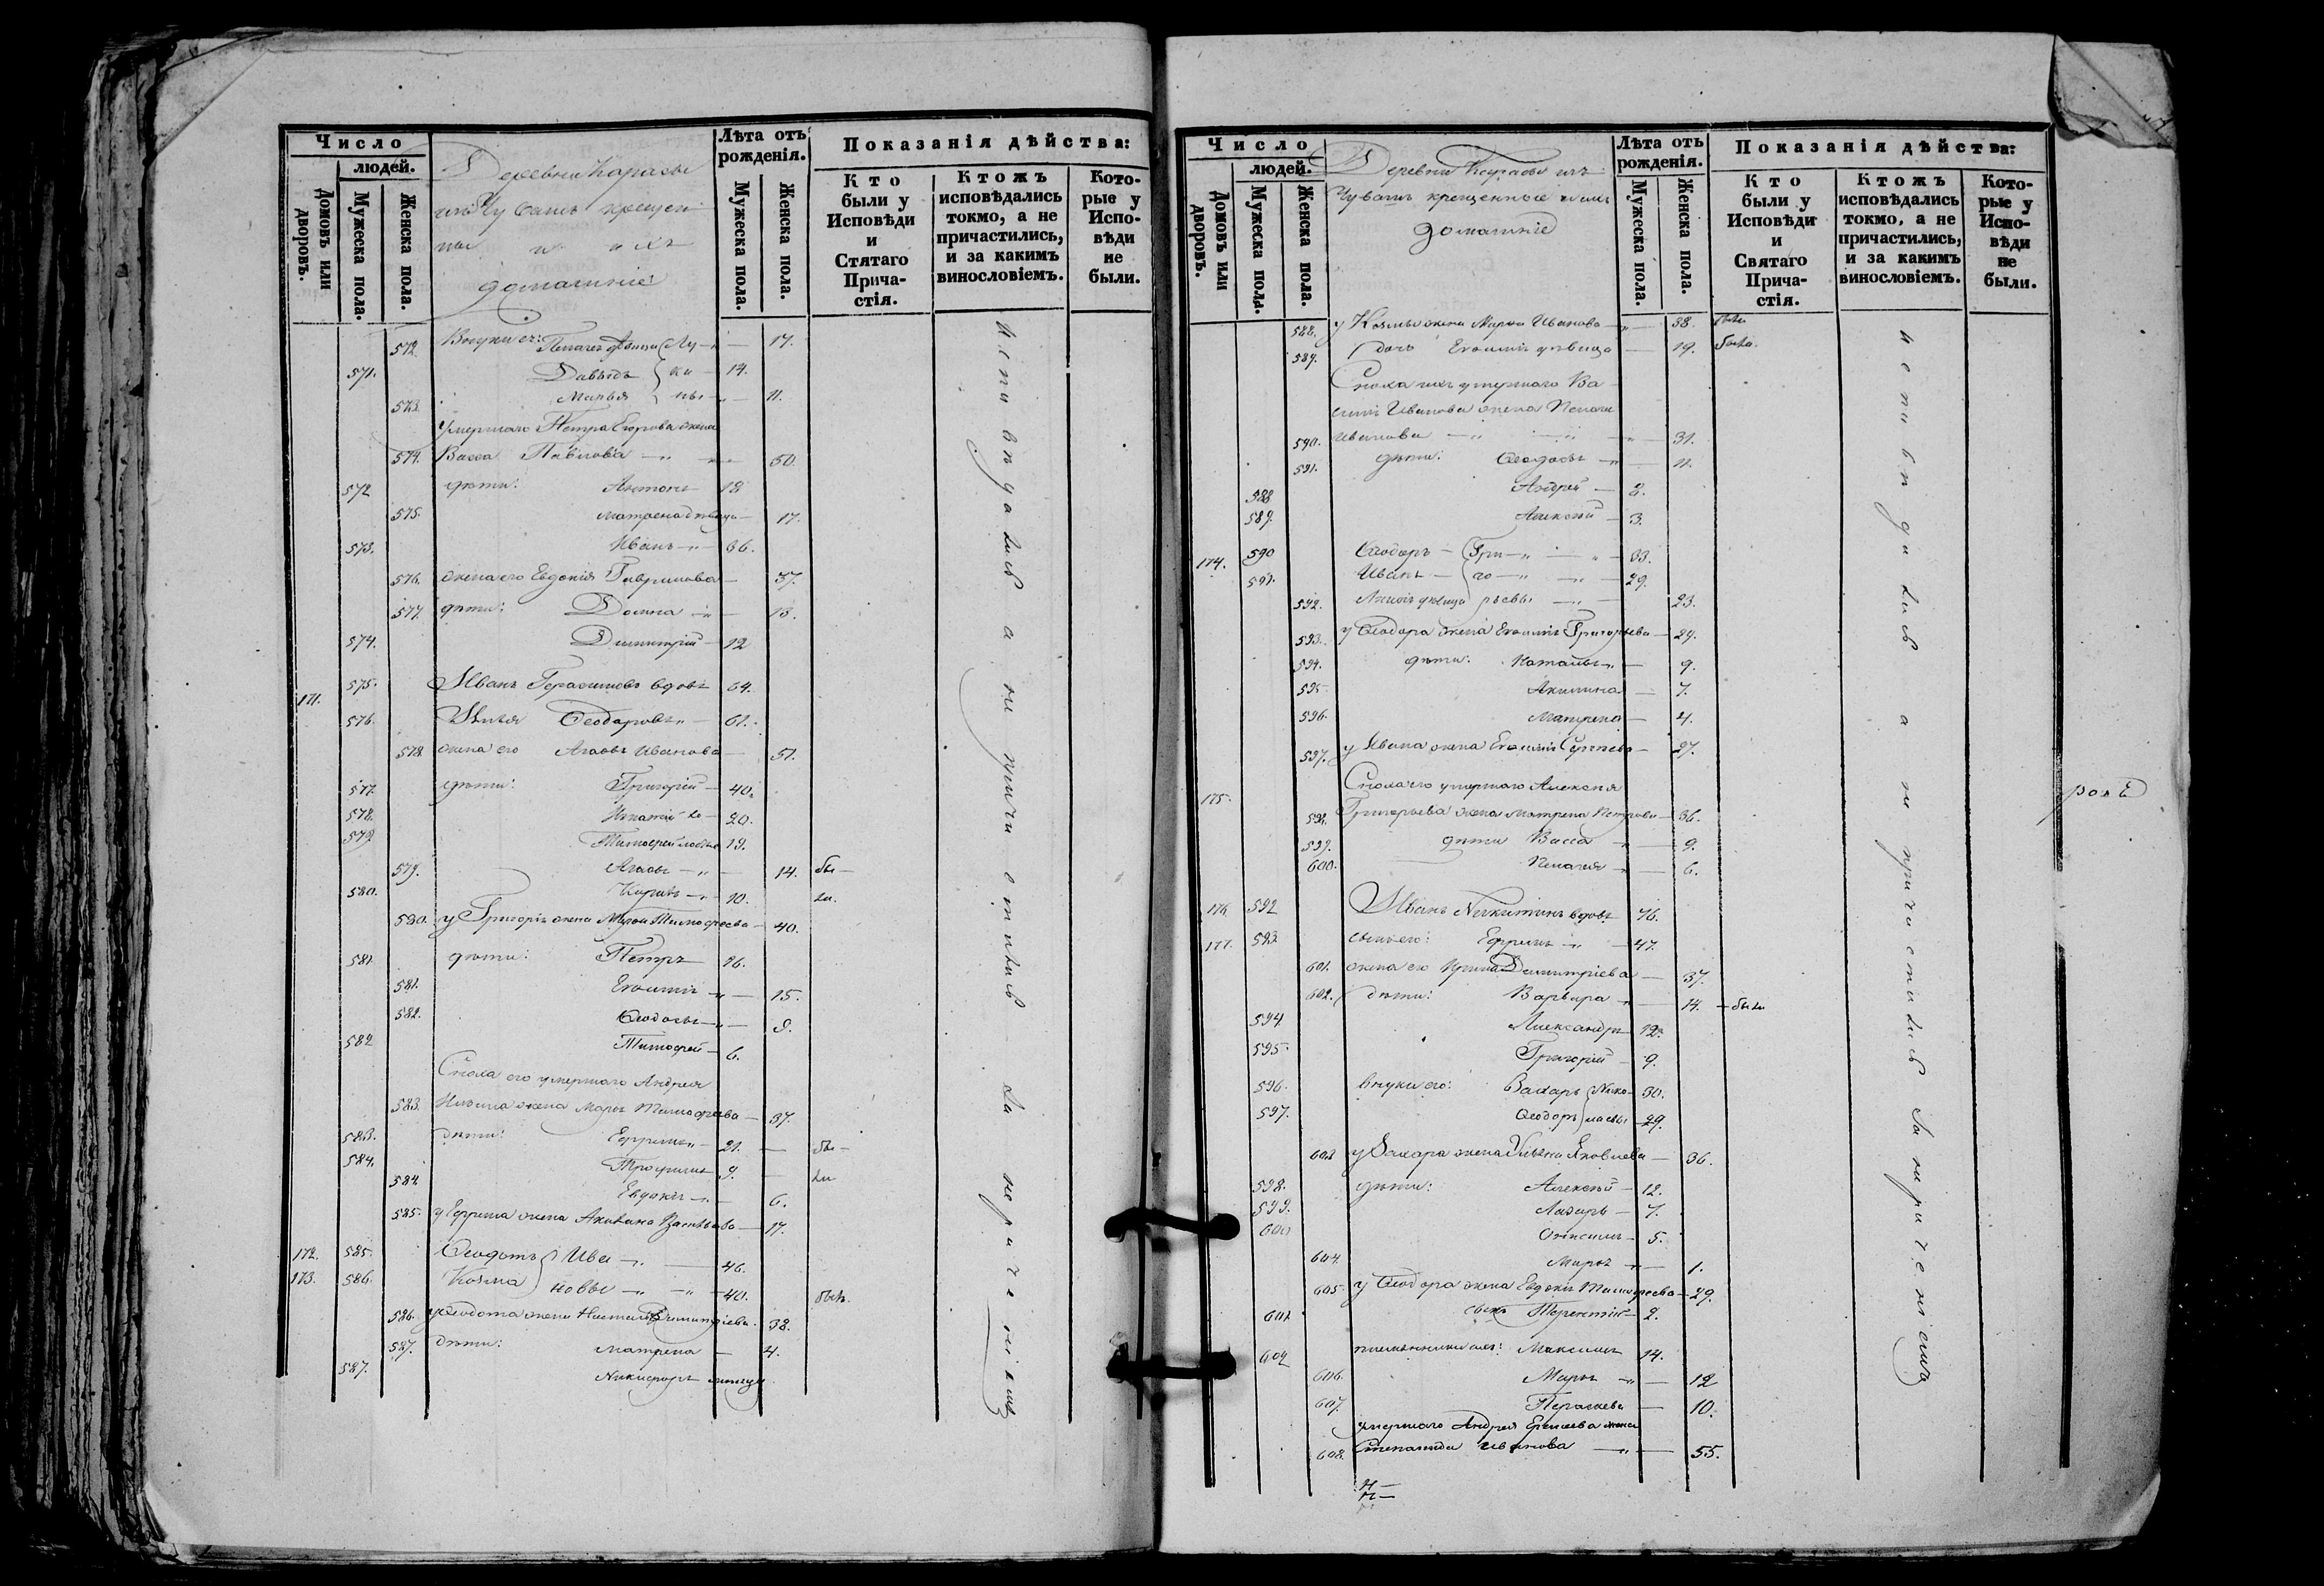 Число
людей.
Домовъ или дворовъ.
Мужеска пола.
Женска пола.
Деревни Карасы
изъ Чувашъ крещен
ные и ихъ
домашніе
Лѣта отъ рожденія.
Мужеска пола.
Женска пола.
Показанія дѣйства:
Кто были у Исповѣди и Стятаго Прича-стія.
Ктожъ исповѣдались токмо, а не причастились, и за какимъ винословіемъ.
Кото-рые у Испо-вѣди не были.
572. Внуки ея: Пелагея дѣвица Лу 17.
571. Давыдъ ки 14.
573. Марья ны 11.
Умершаго Петра Егорова жена
574. Васса Павлова 50.
572 дѣти: Антонъ 18
575. Матрена дѣвица 17.
573. Иванъ 36.
576. жена его Евдокія Гаврилова 37.
577. дѣти: Домна 13.
574. Димитрій 12
171. 575. Иванъ Герасимовъ вдовъ 64.
576. Илья Ѳеодоровъ 61.
578. жена его Агаѳья Иванова 51.
577. дѣти: Григорій 40.
578. Игнатій 20.
579. Тимоѳей 19.
579. Агаѳья 14. бы
580. Кирилъ 10. ли.
580. у Григорія жена Марѳа Тимоѳеева 40.
581. дѣти: Петръ 16.
581. Евѳимія 15.
582. Ѳеодосья 9.
582 Тимоѳей 6.
Сноха его умершаго Андрея
583. Ильина жена Марья Тимоѳеева 37.
583. дѣти: Ефремъ 21. бы
584. Трофимъ 9. ли
584. Евдокія 6.
585. у Ефрема жена Акилина Васильева 17.
172. 585. Ѳеодотъ Ива 46.
173. 586. Козма новы 40. былъ.
586. у Ѳеодота жена Наталья Димитріева 38.
587. дѣти: Матрена 4.
587. Никифоръ
исповѣдались а не причастились за нераченіемъ
Число
людей.
Домовъ или дворовъ.
Мужеска пола.
Женска пола.
Деревни Карасы изъ
Чувашъ крещенные и ихъ
домашніе
Лѣта отъ рожденія.
Мужеска пола.
Женска пола.
Показанія дѣйства:
Кто были у Исповѣди и Святаго Прича-стія.
Ктожъ исповѣдались токмо, а не причастились, и за какимъ винословіемъ.
Кото-рые у Испо-вѣди не были.
588. у Козмы жена Марѳа Иванова 38. была
589. дочь Евѳимія дѣвица 19. была.
Сноха ихъ умершаго Ва
силія Иванова жена Пелагея
590. Иванова 31.
591. дѣти: Ѳеодосья 11.
588. Андрей 8.
589. Алексѣй 3.
174. 590 Ѳеодоръ Гри 33.
591. Иванъ го 29.
592. дѣвица рьевы 23.
593. у Ѳеодора жена Евѳимія Григорьева 29.
594. дѣти: Наталья 9.
595. Акилина 7.
596. Матрена 4.
597. у Ивана жена Евѳимія Сергѣева 27.
175. Сноха его умершаго Алексѣя
598. Григорьева жена Матрена Петрова 36.
599. дѣти Васса 9.
600. Пелагея 6.
176. 592 Иванъ Никитинъ вдовъ 76.
177. 593 сынъ его: Ефремъ 47.
601. жена его Ирина Димитріева 37.
602. дѣти: Варвара 14. была
594 Александръ 12.
595. Григорій 9.
596. внуки его: Захаръ Нико 30.
597. Ѳеодоръ лаевы 29.
603 у Захара жена Ульяна Яковлева 36.
598. дѣти: Алексѣй 12.
599. Лазарь 7.
600 Онисимъ 5.
604. Марья 1.
605. у Ѳеодора жена Евдокія Тимоѳеева 29.
601. сынъ Терентій 2.
602 племянники ихъ: Максимъ 14.
606. Марья 12
607. Пераскева 10.
умершаго Андрея Ермеева жена
608. Степанида Иванова 55.
исповѣдались а не причастились за нераченіемъ